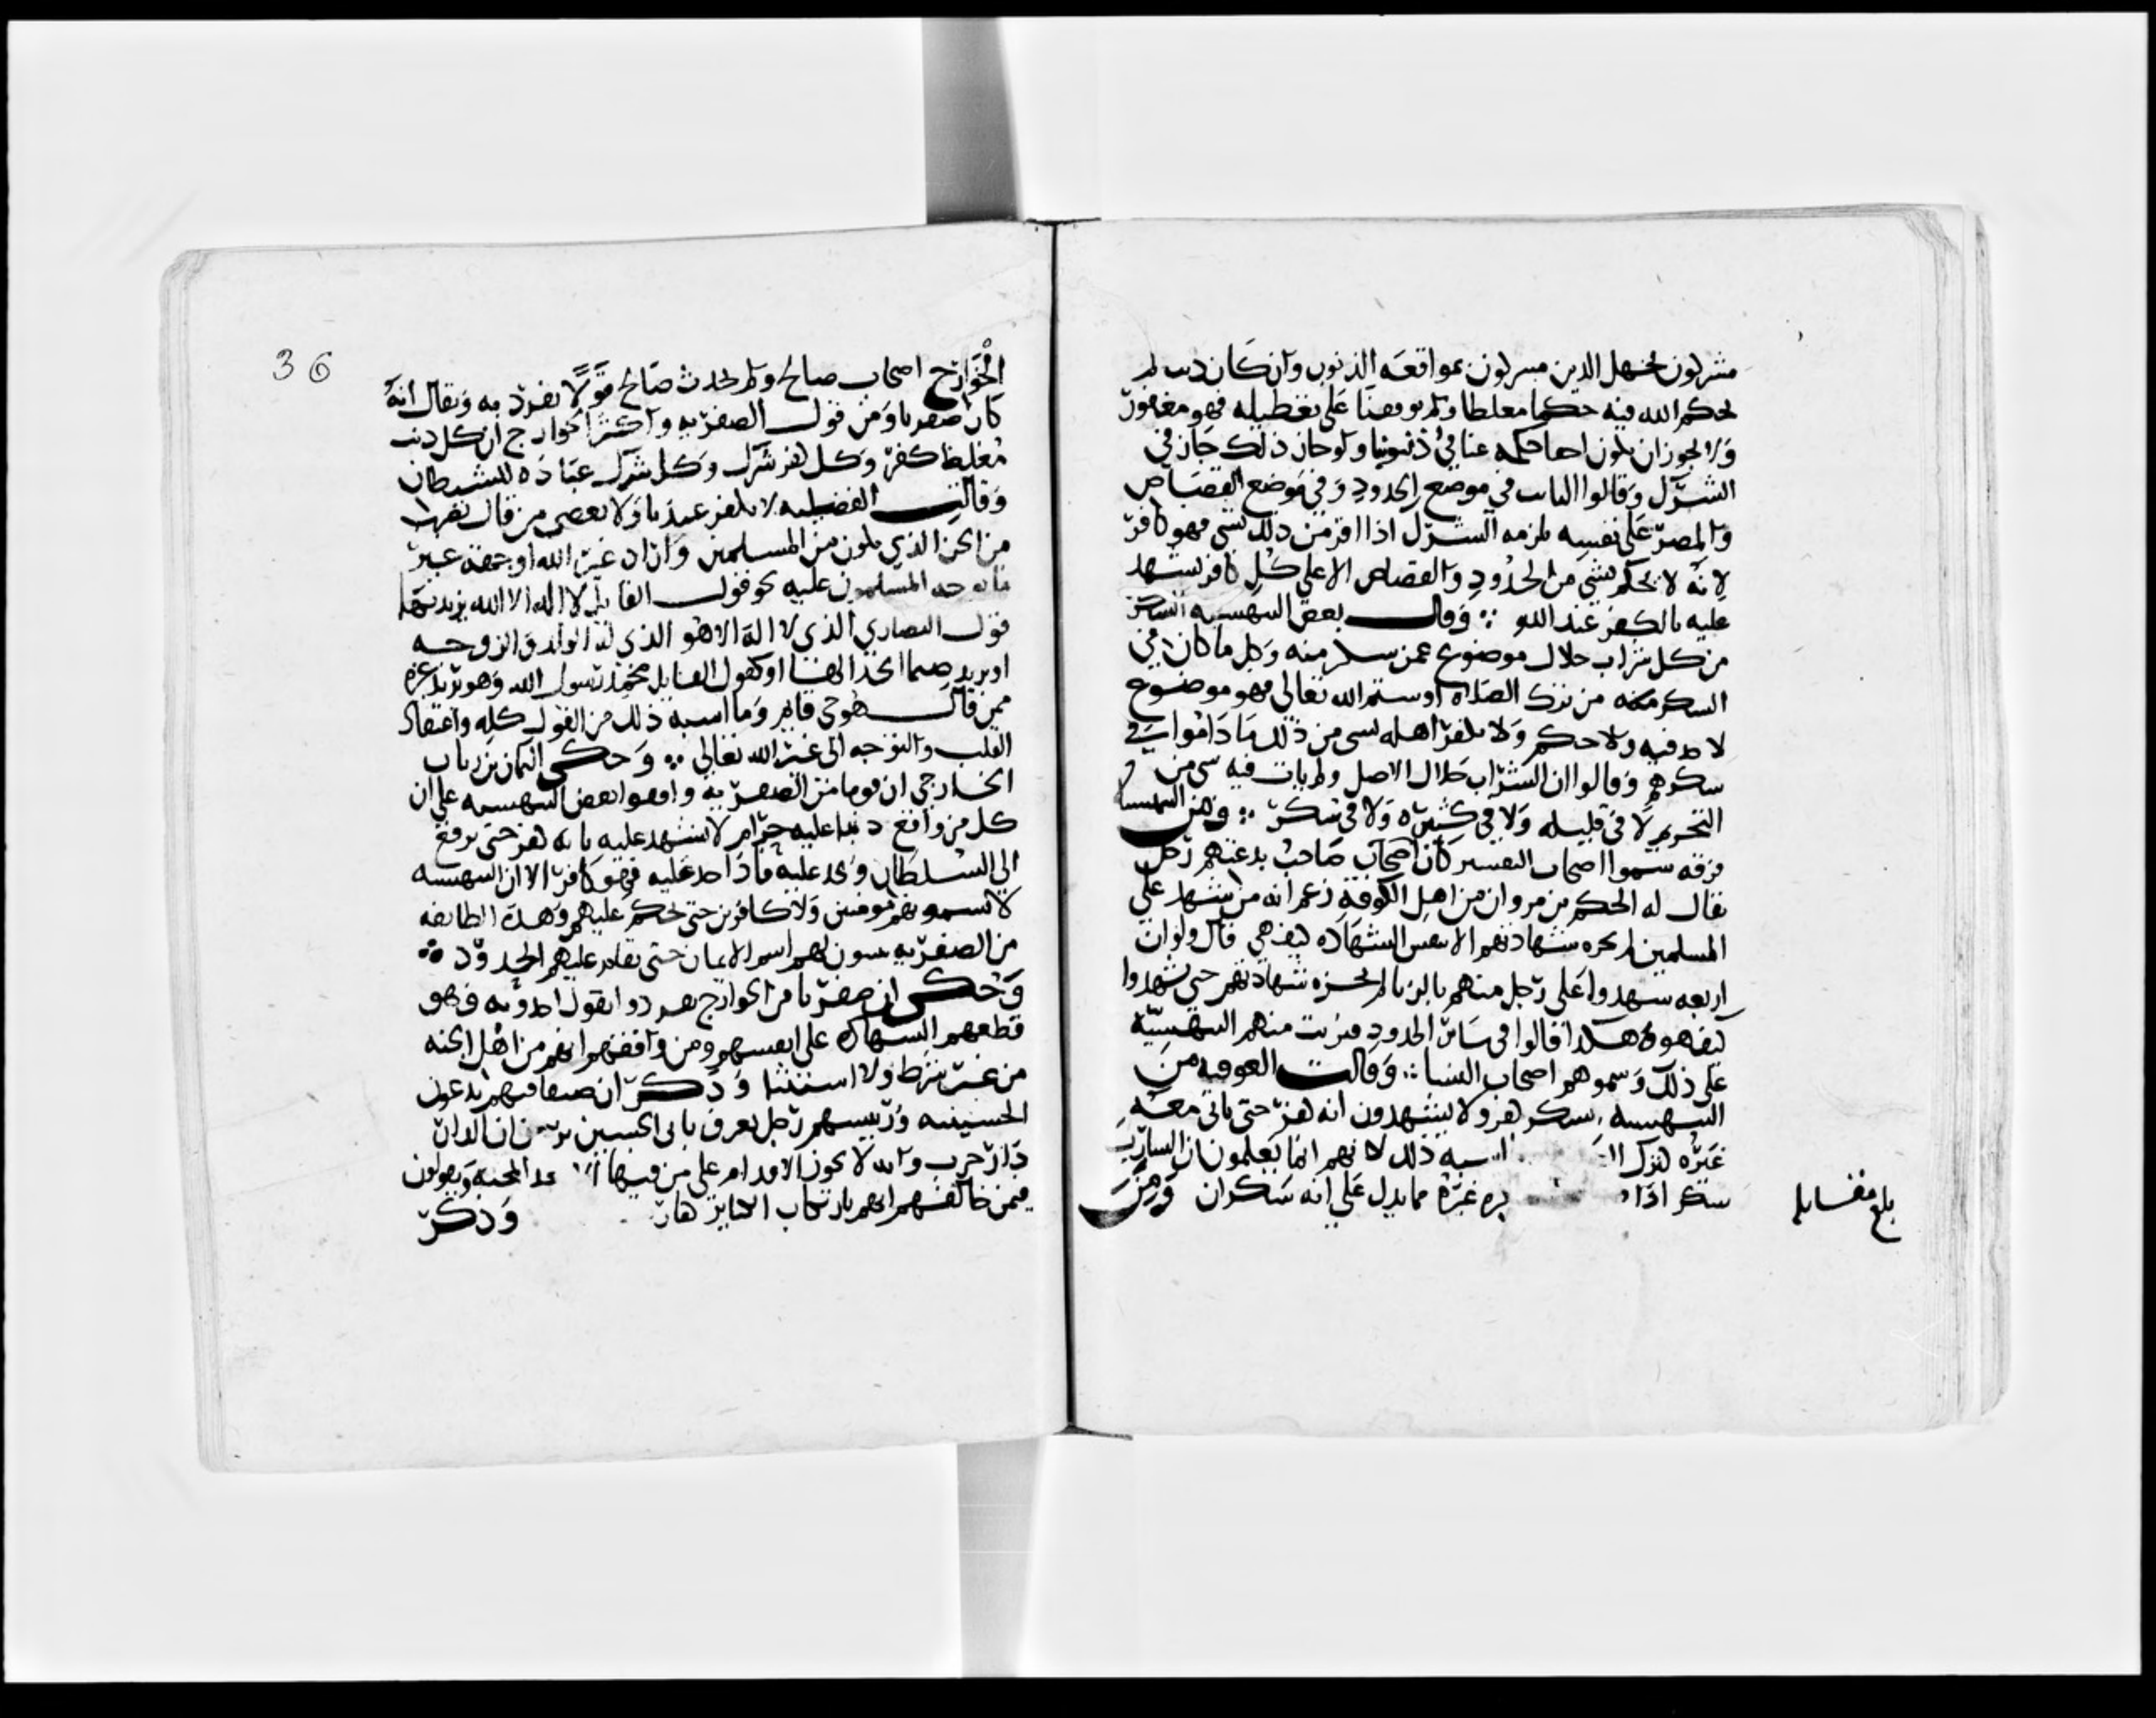 مشركون بجهل الدين مشركون بمواقعه الذنوب وان كان ذنب لم
يحكم الله فيه حكما مغلظا ولم يوقفنا على تغطيله فهو مغفور
ولا يجوز ان يكون اخفا حكمه عنا في ذنوبنا ولو جاز ذلك جاز في
الشرك وقالوا التايب في موضع الحدود وفي موضع القصاص
والمصر على نفسه يلزمه الشرك اذا اقر من ذلك بشي فهو كافر
لانه لا يحكم بشي من الحدود والقصاص الا على كل كافر يشهد
عليه بالكفر عند الله ؞ وقال بعض البيهسيه السكر
من كل شراب حلال موضوع عمن سكر منه وكل ما كان في
السكر منه من ترك الصلاه او شتم الله تعالى فهو موضوع
لا حد فيه ولا حكم ولا يكفر اهله بشي من ذلك ما داموا في
سكرهم وقالوا ان الشراب حلال الاصل ولم يات فيه شي من
التحريم لا في قليله ولا في كثيره ولا في سكر ؞ ومن البيهسيه
فرقه سموا اصحاب التفسير كان صاحب بدعتهم رجل
يقال له الحكم بن مروان من اهل الكوفه زعم انه من شهد على
المسلمين لم يجزه شهادتهم الا بتفسير الشهاده كيف هي قال ولو ان
اربعه شهدوا على رجل منهم بالزنا لم يجزه شهادتهم حتى يشهدوا
كيف هو وهكذا قالوا في ساير الحدود فبريت منهم البيهسيه
على ذلك وسموهم اصحاب النسا ؞ وقالت العوفيه من
البيهسيه السكر كفر ولا يشهدون انه كفر حتى ياتي معه
غيره كترك اشبه ذلك لانهم انما يعلمون ان الشارب
سكر اذا غيره مما يدل على انه سكران ومن
بلغ مقابله
36
الخوارج اصحاب صالح ولم يحدث صالح قولا تفرد به ويقال انه
كان صفريا ومن قول الصفريه واكثر الخوارج ان كل ذنب
مغلظ كفر وكل كفر شرك وكل شرك عباده للشيطان
وقالت الفضيليه لا يكفر عندنا ولا يعصي من قال بضرب
من الحق الذي يكون من المسلمين واراد غير الله او جهته غير
ما وجه المسلمون عليه نحو قول القايل لا اله الا الله يريد بها
قول النصارى الذي لا اله الا هو الذي له الولد والزوجه
او يريد صنما اتخذ الها او كقول القايل محمد رسول الله وهو يريد غيره
ممن قال هو حي قايم وما اشبه ذلك من القول كله واعتقاد
القلب والتوجه الى غير الله تعالى ؞ وحكى اليمان بن رباب
الخارجي ان قوما من الصفريه وافقوا بعض البيهسيه على ان
كل من واقع ذنبا عليه حرام لا يشهد عليه بانه كفر حتى يرفع
الى السلطان ويحد عليه فاذا حد عليه فهو كافر الا ان البيهسيه
لا يسمونهم مومنين ولا كافرين حتى يحكم عليهم وهذه الطايفه
من الصفريه يثبتون لهم اسم الايمان حتى يقام عليهم الحدود ؞
وحكى ان صفريا من الخوارج تفردوا بقول احدثوه فهو
قطعهم الشهاده على انفسهم ومن وافقهم انهم من اهل الجنه
من غير شرط ولا استثنا وذكر ان صنفا منهم يدعون
الحسينيه ورييسهم رجل يعرف بابي الحسين يرون ان الدار
دار حرب وانه لا يجوز الاقدام على من فيها الا بعد المحنه ويقولون
فيمن خالفهم انهم بارتكاب الكباير كفار وذكر